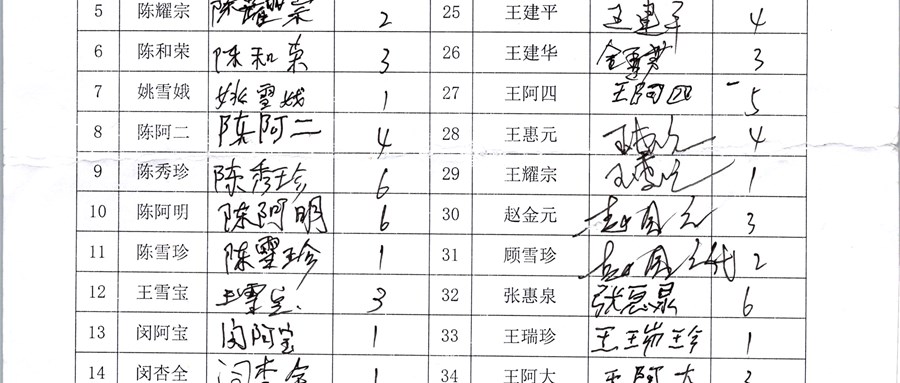 5 陈耀宗 陈耀宗 2 25 王建平 王建平 4
6 陈和荣 陈和荣 3 26 王建华 金雪英 3
7 姚雪娥 姚雪娥 1 27 王阿四 王阿四 5
8 陈阿二 陈阿二 4 28 王惠元 4
9 陈秀珍 陈秀珍 6 29 王耀宗 1
10 陈阿明 陈阿明 6 30 赵金元 3
11 陈雪珍 陈雪珍 1 31 顾雪珍 2
12 王雪宝 王雪宝 3 32 张惠泉 张惠泉 6
13 闵阿宝 闵阿宝 1 33 王瑞珍 王瑞珍 1
14 闵杏全 闵杏全 1 34 王阿大 王阿大